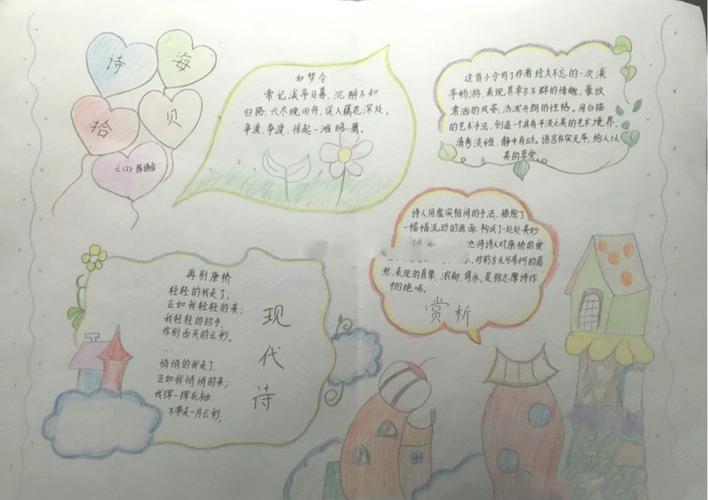 诗 海
拾 贝
如梦令
常记溪亭日暮，沉醉不知
归路，兴尽晚回舟，误入藕花深处。
争渡，争渡，惊起一滩鸥鹭。
这首小令写了作者经久不忘的一次溪
亭畅游，表现其卓尔不群的情趣，豪放
潇洒的风姿，活泼开朗的性格。用白描
的艺术手法，创造一个具有平淡之美的艺术境界，
清秀淡雅，静中有动，语言朴实无华，给人以
美的享受。
诗人用虚实相间的手法，描绘了
一幅幅流动的画面，构成了一处处美妙
也将诗人对康桥的爱
想，表现的真挚，浓郁，隽永，是徐志摩诗作
中的绝唱。
赏析
再别康桥
轻轻的我走了，
正如我轻轻的来；
我轻轻的招手，
作别西天的云彩。
...
悄悄的我走了，
正如我悄悄的来；
我挥一挥衣袖，
不带走一片云彩。
现代诗